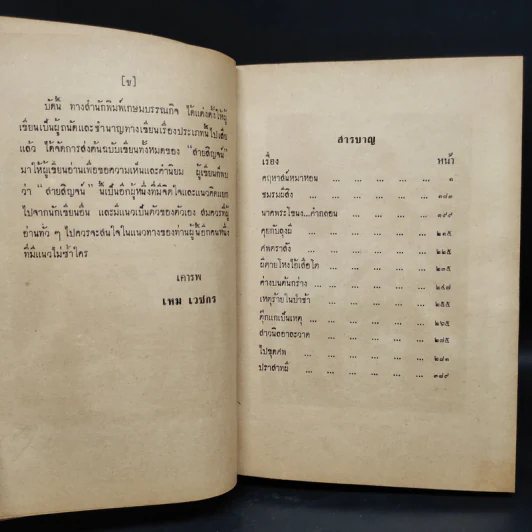 [ข]
บัดนี้ ทางสำนักพิมพ์เกษมบรรณกิจ ได้แต่งตั้งให้ผู้
เขียนเป็นผู้ถนัดและชำนาญทางเขียนเรื่องประเภทนี้ไปเสีย
แล้ว ได้จัดการส่งต้นฉบับเขียนทั้งหมดของ “สายสิญจน์”
มาให้ผู้เขียนอ่านเพื่อขอความเห็นและคำนิยม ผู้เขียนก็พบ
ว่า “สายสิญจน์” นี้เป็นอีกผู้หนึ่งที่มีจิตใจและแนวคิดแยก
ไปจากนักเขียนอื่น และมีแนวเป็นตัวของตัวเอง สมควรที่ผู้
อ่านทั่ว ๆ ไปควรจะสนใจในแนวทางของท่านผู้นี้อีกคนหนึ่ง
ที่มีแนวไม่ซ้ำใคร
เคารพ
เหม เวชกร
สารบาญ
เรื่อง หน้า
คฤหาสน์หมาหอน ... ... ... ... ๑
ชมรมผีสิง ... ... ... ... ... ๑๘๑
นาคพระโขนง...คำกลอน ... ... ... ๑๙๙
คุยกับลุงผี ... ... ... ... ... ๒๑๕
ศพตราสัง ... ... ... ... ... ๒๒๕
ผีตายโหงไอ้เสือโต ... ... ... ... ๒๓๕
ค่างบนต้นกร่าง ... ... ... ... ... ๒๔๗
เหตุร้ายในป่าช้า ... ... ... ... ๒๕๕
ตุ๊กแกเป็นเหตุ ... ... ... ... ... ๒๖๕
สาวน้อย ... ... ... ... ... ๒๗๕
ไปขุดศพ ... ... ... ... ... ๒๘๑
ปราสาทผี ... ... ... ... ... ๓๘๙